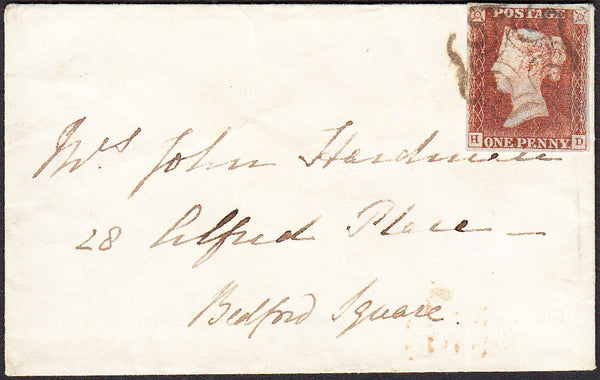 POSTAGE
H ONE PENNY D
Mrs John Hardman
28 Alfred Place —
Bedford Square.